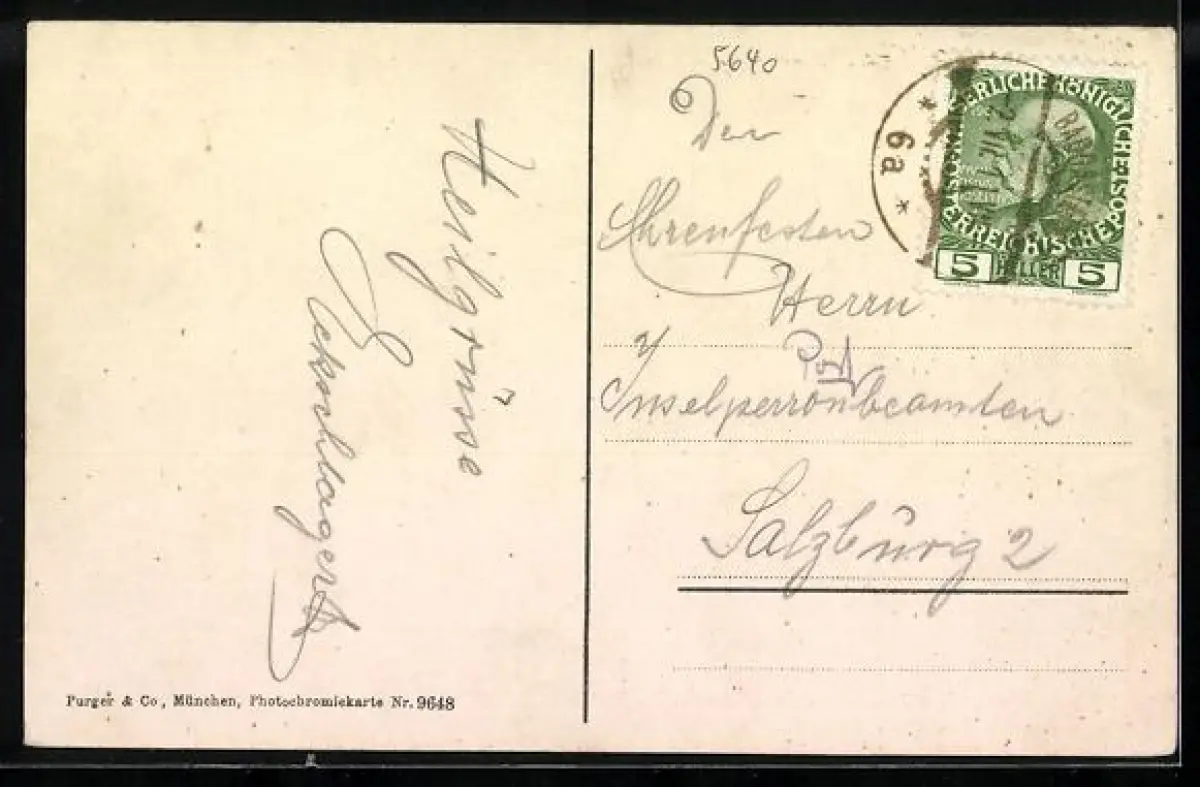 5640
Heilgrüsse
Der
Ehrenfesten
Herrn
Inselperronbeamten
Salzburg 2
* 6a *
KAISERLICHE KÖNIGLICHE
ÖSTERREICHISCHE POST
5 HELLER 5
Purger & Co, München, Photochromiekarte Nr. 9648